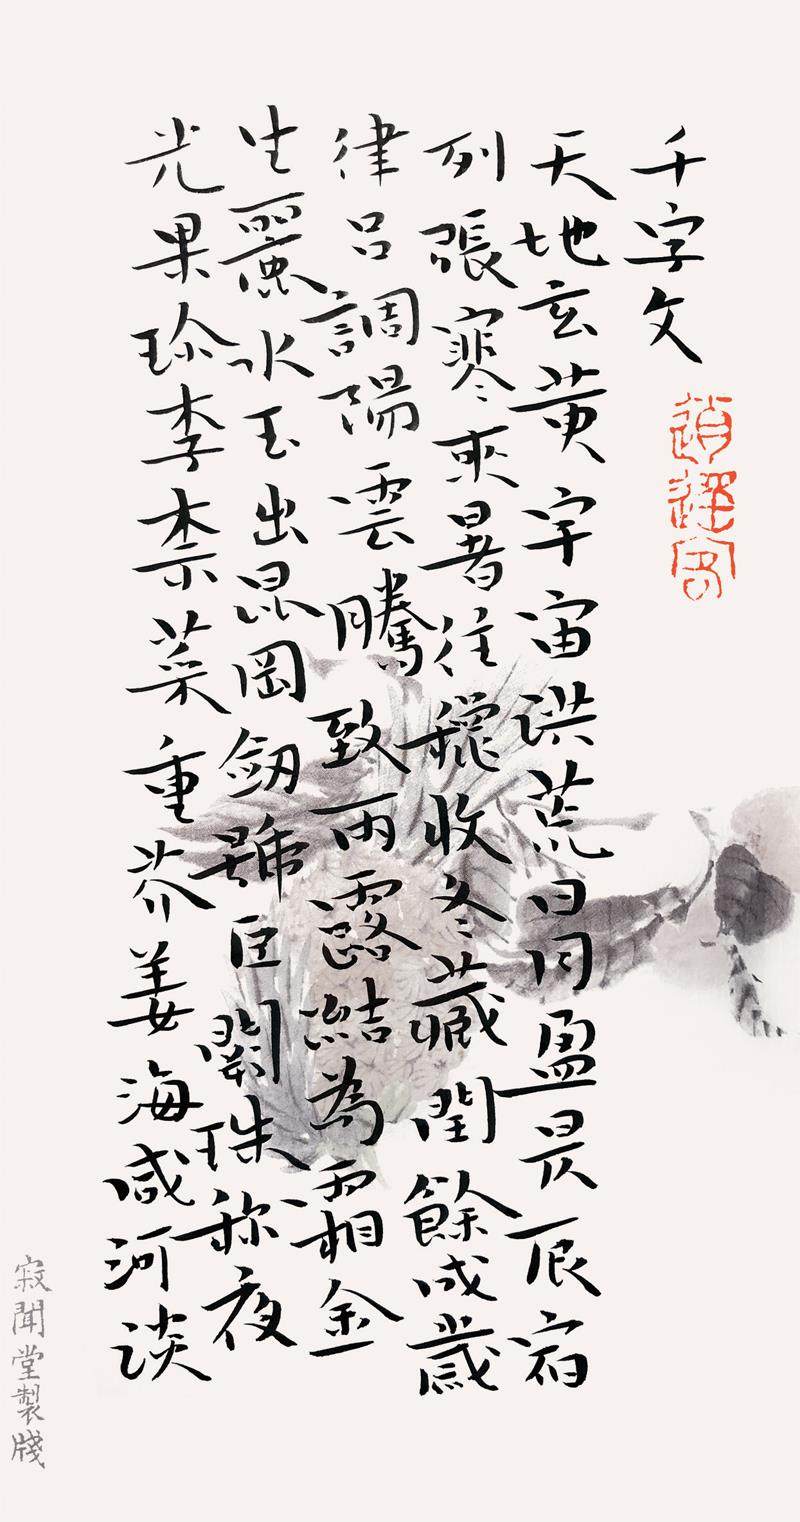 千字文
天地玄黄宇宙洪荒日月盈昃辰宿
列張寒來暑往穐收冬藏閏餘成歲
律吕調陽雲騰致雨露結為霜金
生麗水玉出昆岡劒號巨闕珠称夜
光果珍李柰菜重芥姜海咸河淡
寂聞堂製牋